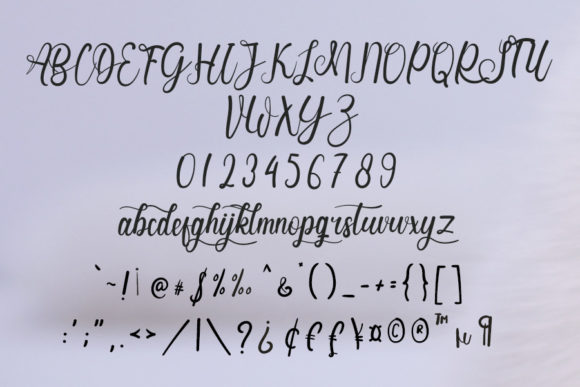 ABCDEFGHIJKLMNOPQRSTU
VWXYZ
0123456789
abcdefghijklmnopqrstuvwxyz
`~!¡@#$%‰^&*()_-+={}[]
:';",.<>/|\?¿¢£€¥¤©®™µ¶